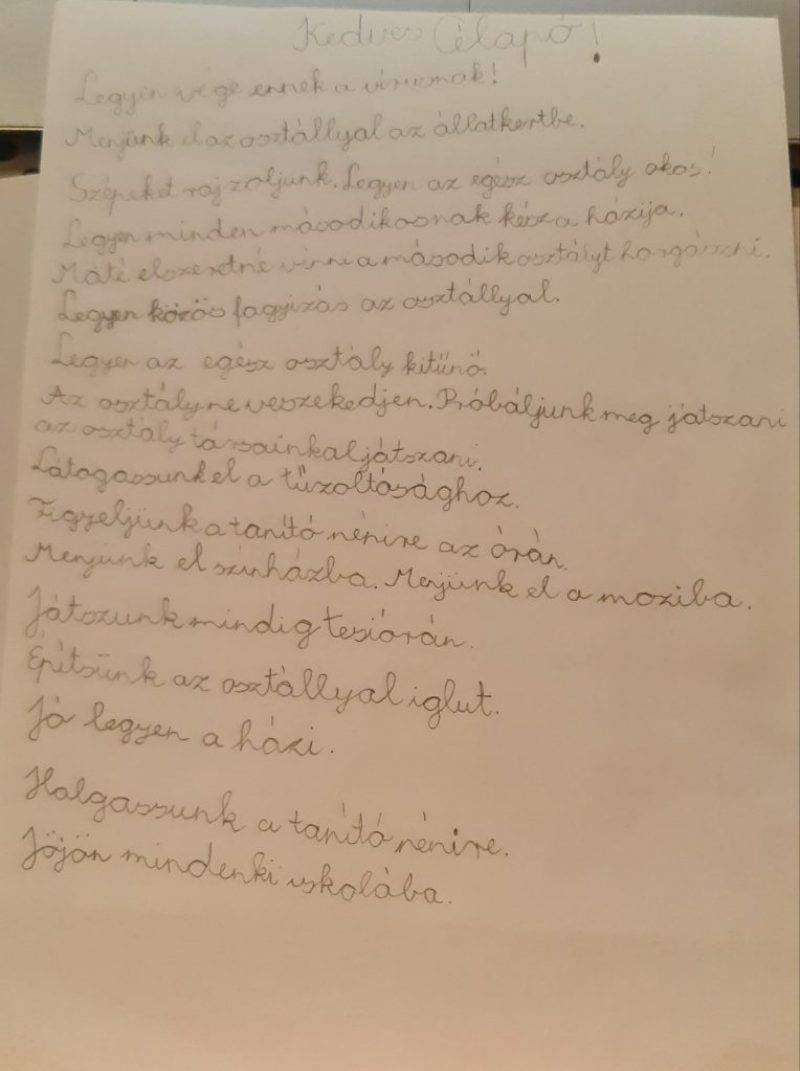 Kedves Célapó!
Legyen vége ennek a vírusnak!
Menjünk el az osztállyal az állatkertbe.
Szépeket rajzoljunk. Legyen az egész osztály okos!
Legyen minden másodikosnak kész a házija.
Máté elszeretné vinni a második osztályt horgászni.
Legyen közös fagyizás az osztállyal.
Legyen az egész osztály kitűnő.
Az osztály ne veszekedjen. Próbáljunk meg játszani
az osztály társainkal játszani.
Látogassunk el a tűzoltósághoz.
Figyeljünk a tanító nénire az órán.
Menjünk el színházba. Menjünk el a moziba.
Játszunk mindig tesiórán.
Építsünk az osztállyal iglut.
Jó legyen a házi.
Halgassunk a tanító nénire.
Jöjön mindenki iskolába.